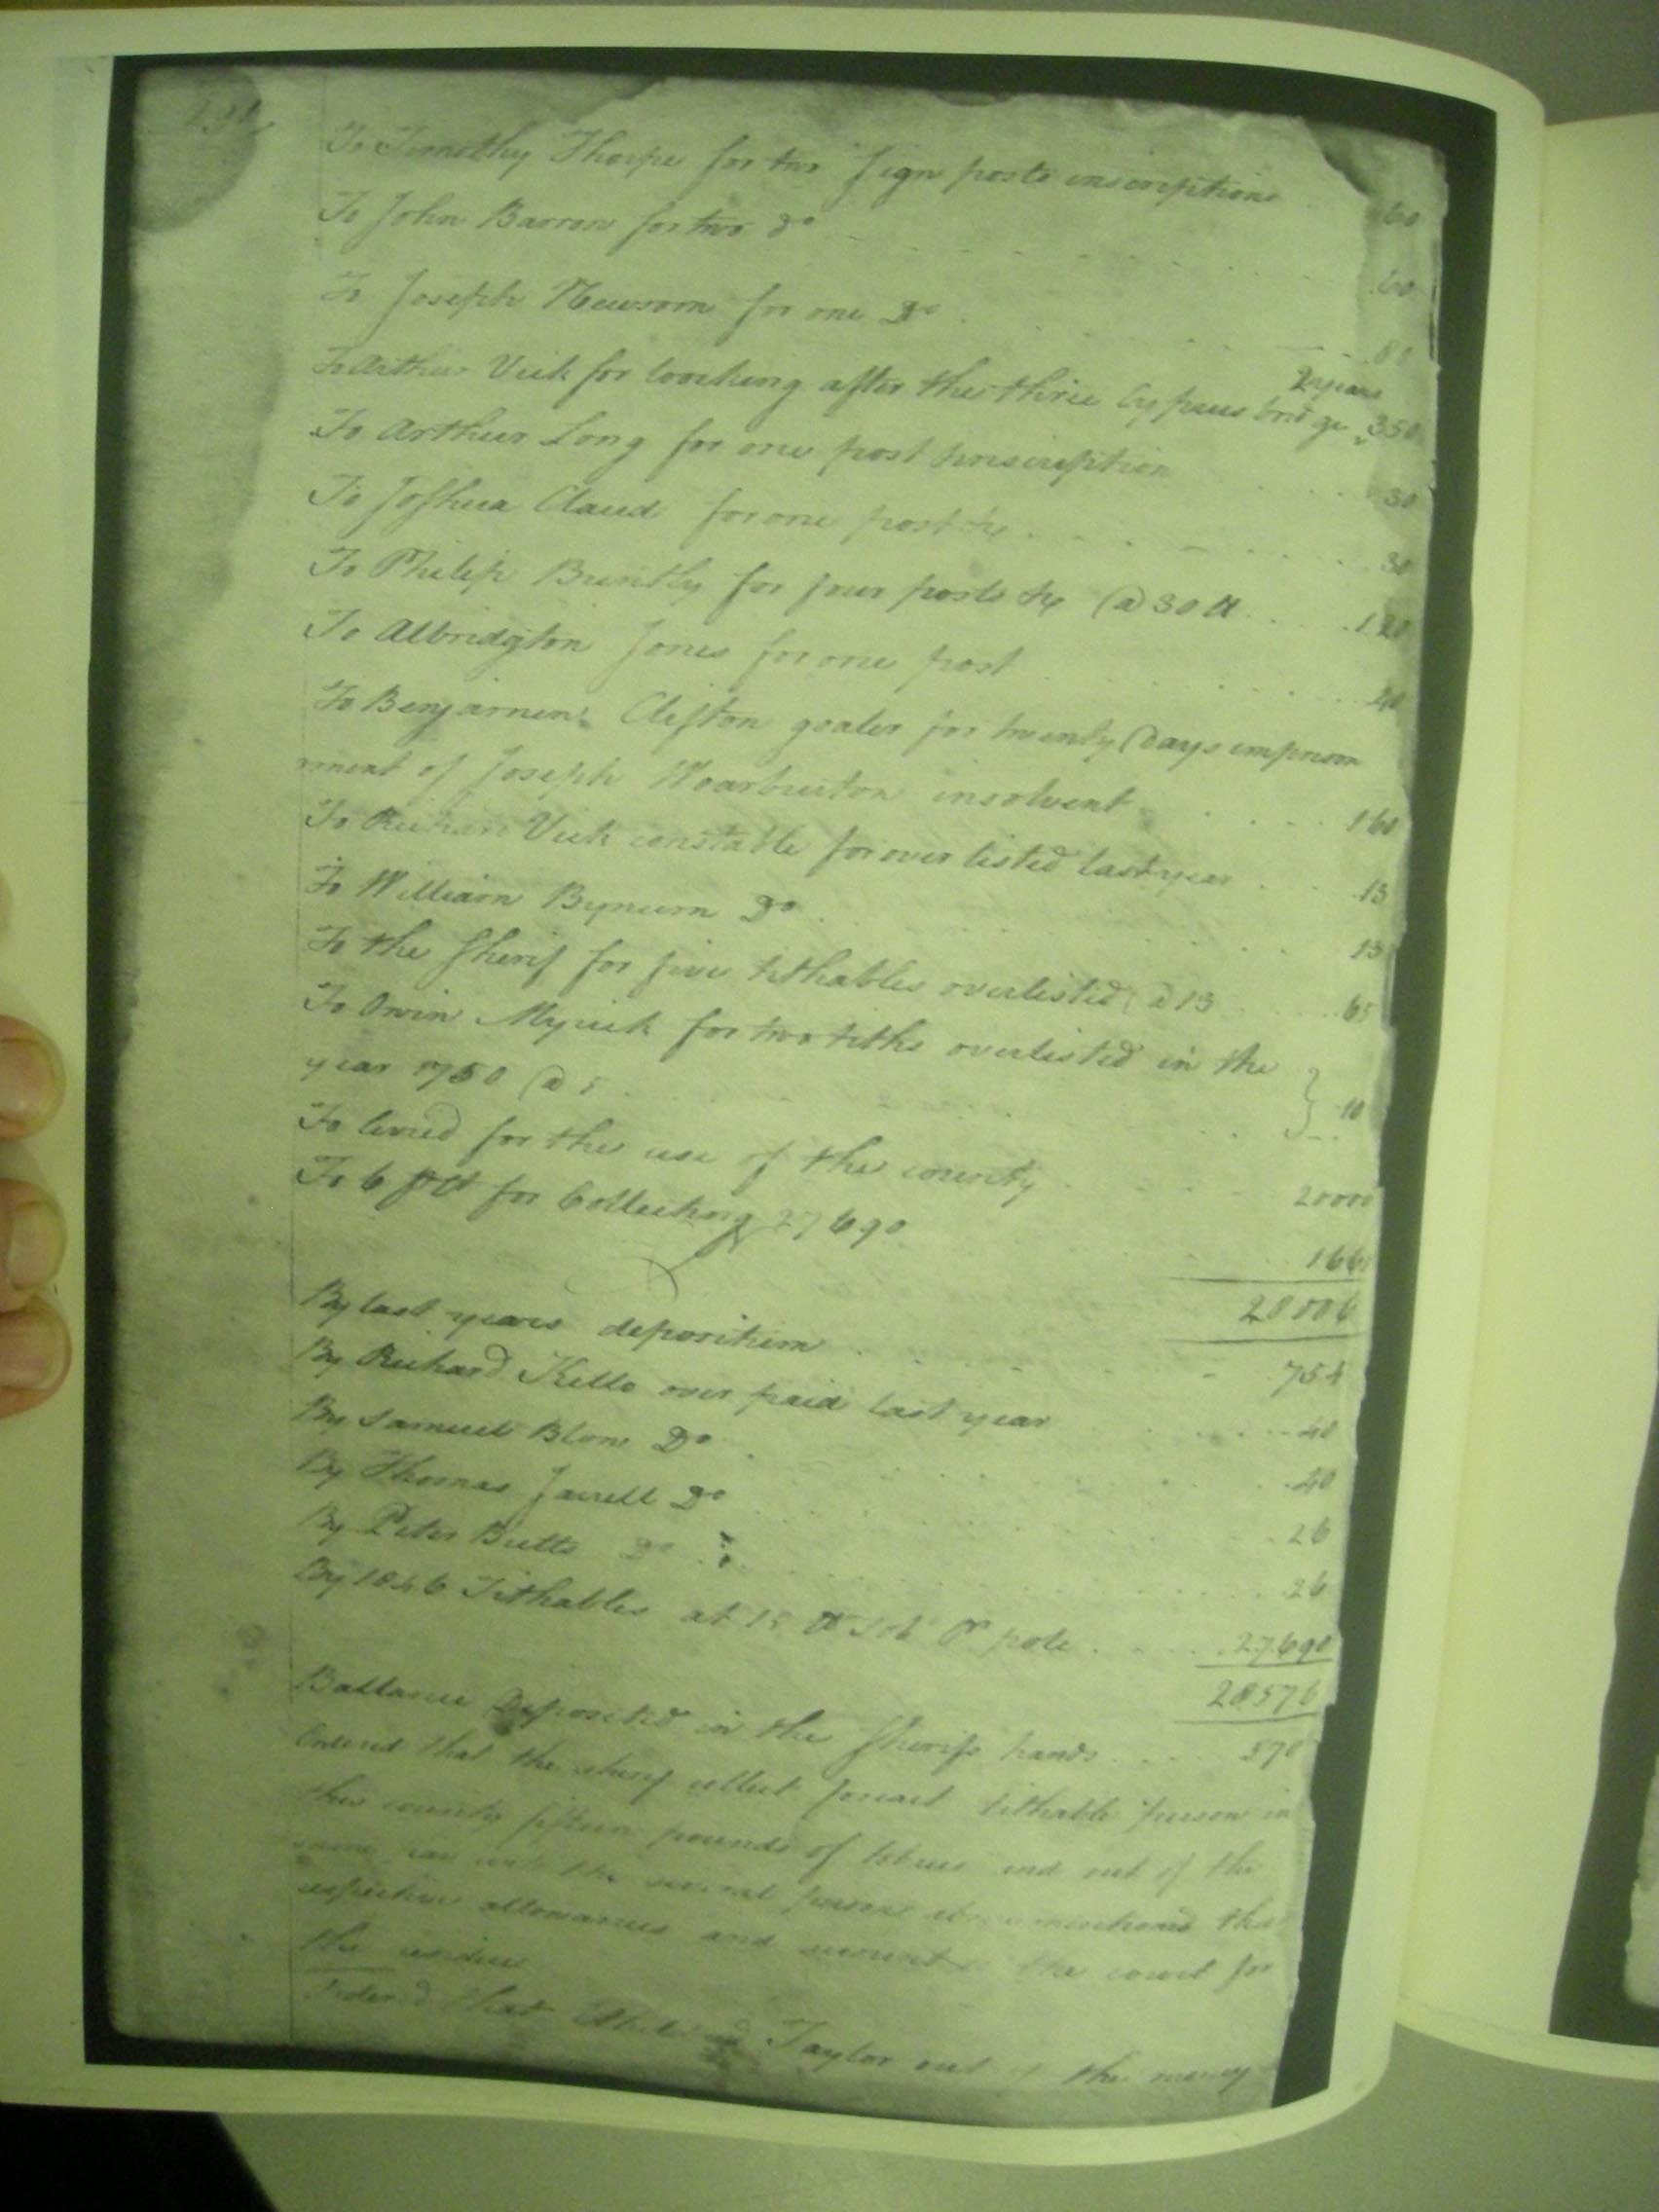 To Timothy Thorpe for two sign posts inscriptions 60
To John Barrow for two Do 60
To Joseph Newsom for one Do
2 years
To Arthur Vick for looking after the three cypress bridge 350
To Arthur Long for one post & inscription 30
To Joshua Claud for one post &c 30
To Philip Brantly for four posts &c @ 30 lb 120
To Albridgton Jones for one post
To Benjamin Clifton goaler for twenty Days imprison
ment of Joseph Woarburton insolvent 160
To Richard Vick constable for over listed last year 13
To William Bynum Do 13
To the Sherif for five tithables overlisted @ 13 65
To Owin Myrick for two tiths overlisted in the
year 1750 @ 5 10
To levied for the use of the county 20000
To 6 for Collecting 27690 166
By last years depositum 754
By Richard Kello over paid last year 40
By Samuel Blow Do 40
By Thomas Jarrell Do 26
By Peter Butts Do 26
By 1846 Tithables at 15 lb Tob pr pole 27690
28576
Ballance Deposited in the Sherifs hands 570
Ordered that the sherif collect for each tithable person in
this county fifteen pounds of tobacco and out of the
same the several persons above mentioned their
respective allowances and account to the court for
the residue
Ordered that Taylor out of the money